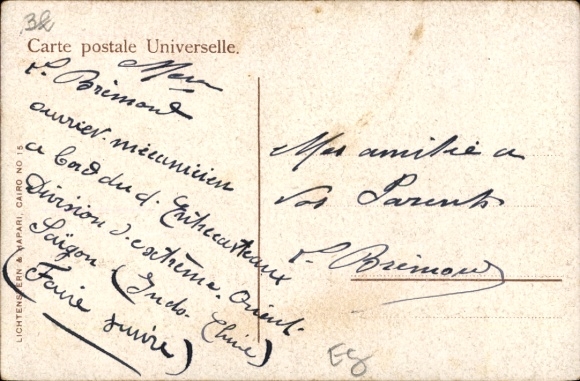 Carte postale Universelle.
L. Brémond
ouvrier mécanicien
a bord du d'Entrecasteaux
Division d'extrême-Orient
Saïgon (Indo-Chine)
(Faire suivre)
Mes amitié a
vos Parents
L. Brémond
LICHTENSTERN & HARARI, CAIRO NO 15